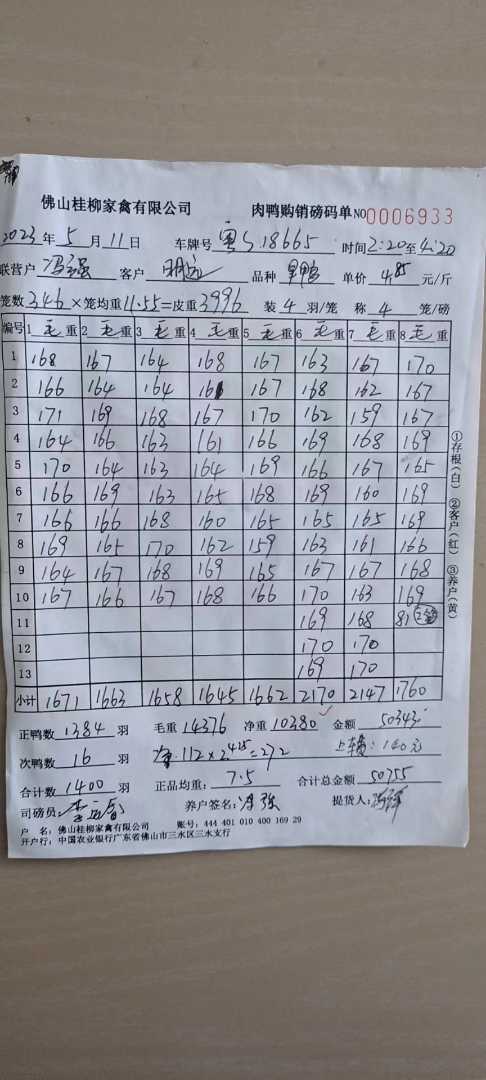 佛山桂柳家禽有限公司 肉鸭购销磅码单 NO 0006933
2023年5月11日 车牌号 粤S18665 时间2:20至4:20
联营户 冯强 客户 明 品种 单价 4.85 元/斤
笼数346×笼均重11.55=皮重3996 装4羽/笼 称4笼/磅
编号 1毛重 2毛重 3毛重 4毛重 5毛重 6毛重 7毛重 8毛重
1 168 167 164 168 167 163 167 170
2 166 164 164 161 167 168 162 167
3 171 169 168 167 170 162 159 167
4 164 166 163 161 166 169 168 169
5 170 164 163 164 169 166 167 165
6 166 169 163 165 168 169 160 169
7 166 166 168 160 165 165 165 169
8 169 165 170 162 159 163 161 166
9 164 167 168 169 165 167 167 168
10 167 166 167 168 166 170 163 169
11 169 168 81
12 170 170
13 169 170
小计 1671 1663 1658 1645 1662 2170 2147 1760
①存根(白) ②客户(红) ③养户(黄)
正鸭数 1384 羽 毛重 14376 净重 10380 金额 50343
次鸭数 16 羽 112×2.425=272 上车费:140元
合计数 1400 羽 正品均重: 7.5 合计总金额 50755
司磅员: 养户签名: 冯强 提货人:
户 名:佛山桂柳家禽有限公司 账号:444 401 010 400 169 29
开户行:中国农业银行广东省佛山市三水区三水支行